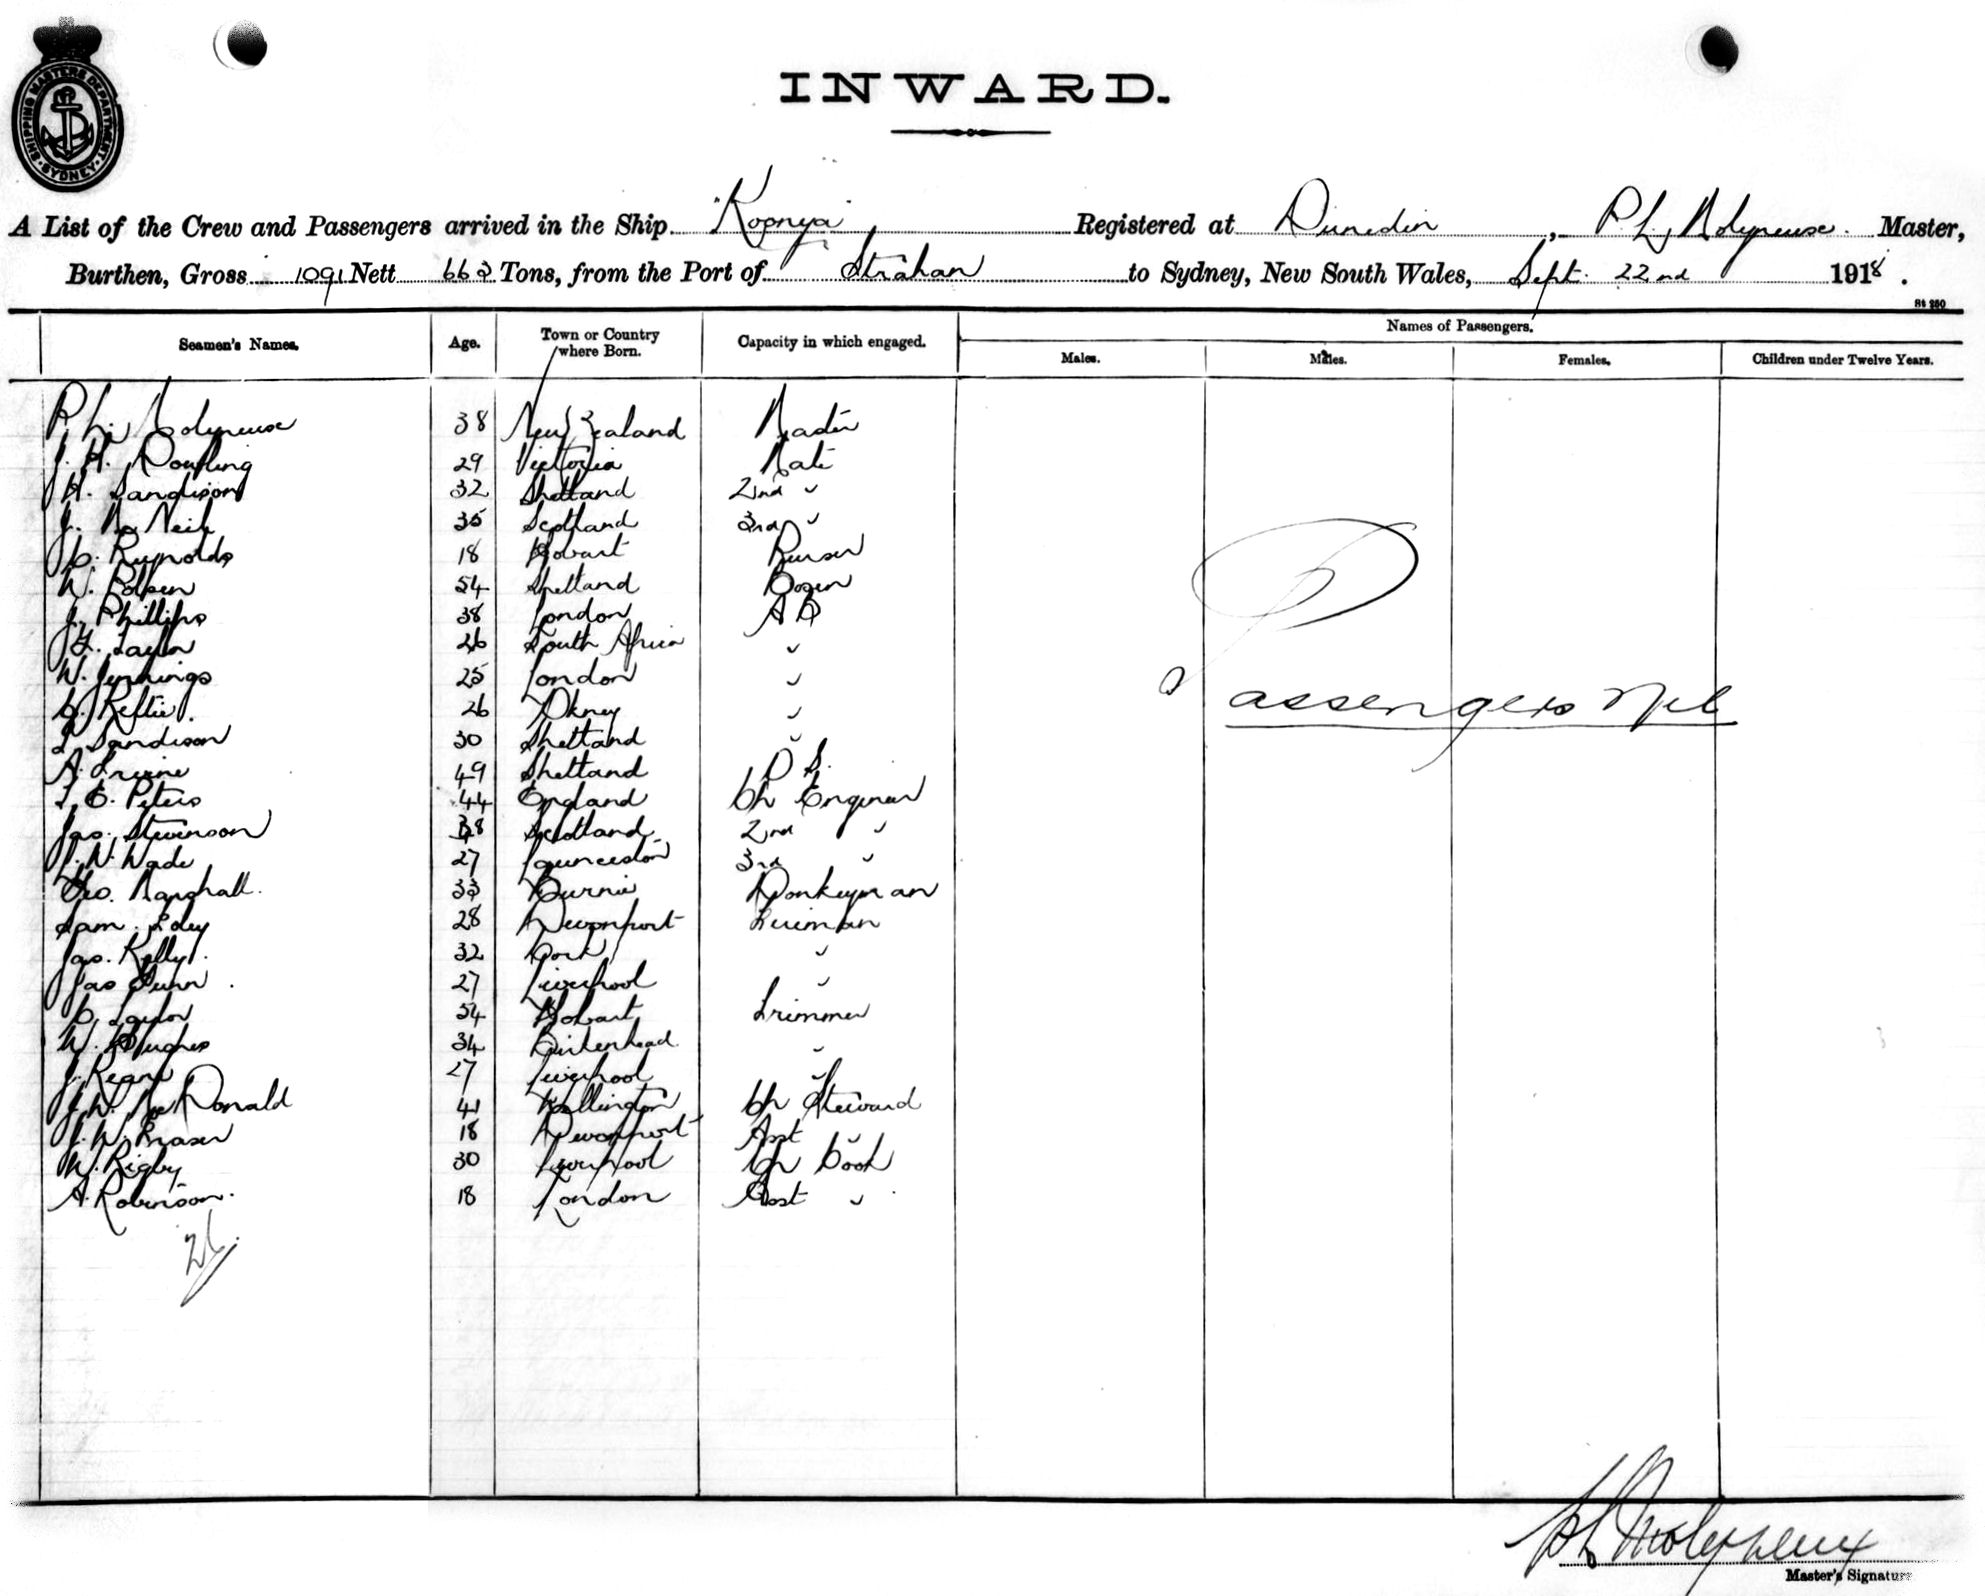 SHIPPING MASTERS DEPARTMENT · SYDNEY ·
INWARD.
A List of the Crew and Passengers arrived in the Ship "Koonya" Registered at Dunedin, P. L. Molyneux. Master,
Burthen, Gross 1091 Nett 663 Tons, from the Port of Strahan to Sydney, New South Wales, Sept. 22nd 1918.
St 250
Seamen's Names. Age. Town or Country where Born. Capacity in which engaged. Names of Passengers.
Males. Males. Females. Children under Twelve Years.
P. L. Molyneux 38 New Zealand Master
J. H. Dowling 29 Victoria Mate
H. Sandison 32 Shetland 2nd "
J. McNeil 35 Scotland 3rd "
C. Reynolds 18 Hobart Purser
W. Polson 54 Shetland Bosun
J. Phillips 38 London A B
J. Taylor 26 South Africa "
W. Jennings 25 London "
26 Okney "
Sandison 30 Shetland "
A. Irvine 49 Shetland O S.
E. Peters 44 England Ch Engineer
Jas. Stevenson 38 Scotland 2nd "
W. Wade 27 Launceston 3rd "
Geo. Marshall. 33 Burnie Donkeyman
Sam. 28 Devonport Fireman
Jas. Kelly. 32 Cork "
Jas Dunn. 27 Liverpool "
C. Taylor 54 Hobart Trimmer
W. Hughes 34 Birkenhead. "
J. Regan 27 Liverpool "
J. W. McDonald 41 Wellington Ch Steward
J. W. Fraser 18 Devonport Asst "
W. Rigby 30 Liverpool Ch Cook
A. Robinson. 18 London Asst "
26
Passengers Nil
P L Molyneux
Master's Signature